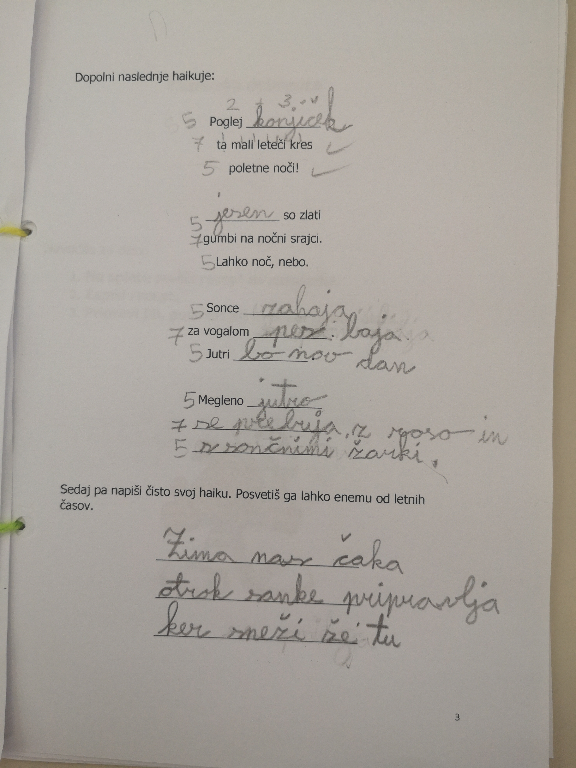 Dopolni naslednje haikuje:
2 + 3
5 Poglej konjiček
7 ta mali leteči kres
5 poletne noči!
5 jesen so zlati
7 gumbi na nočni srajci.
5 Lahko noč, nebo.
5 Sonce zahaja
7 za vogalom pes laja.
5 Jutri bo nov dan
5 Megleno jutro
7 se prebuja z roso in
5 s sončnimi žarki.
Sedaj pa napiši čisto svoj haiku. Posvetiš ga lahko enemu od letnih
časov.
Zima nas čaka
otrok sanke pripravlja
ker sneži že tu
3